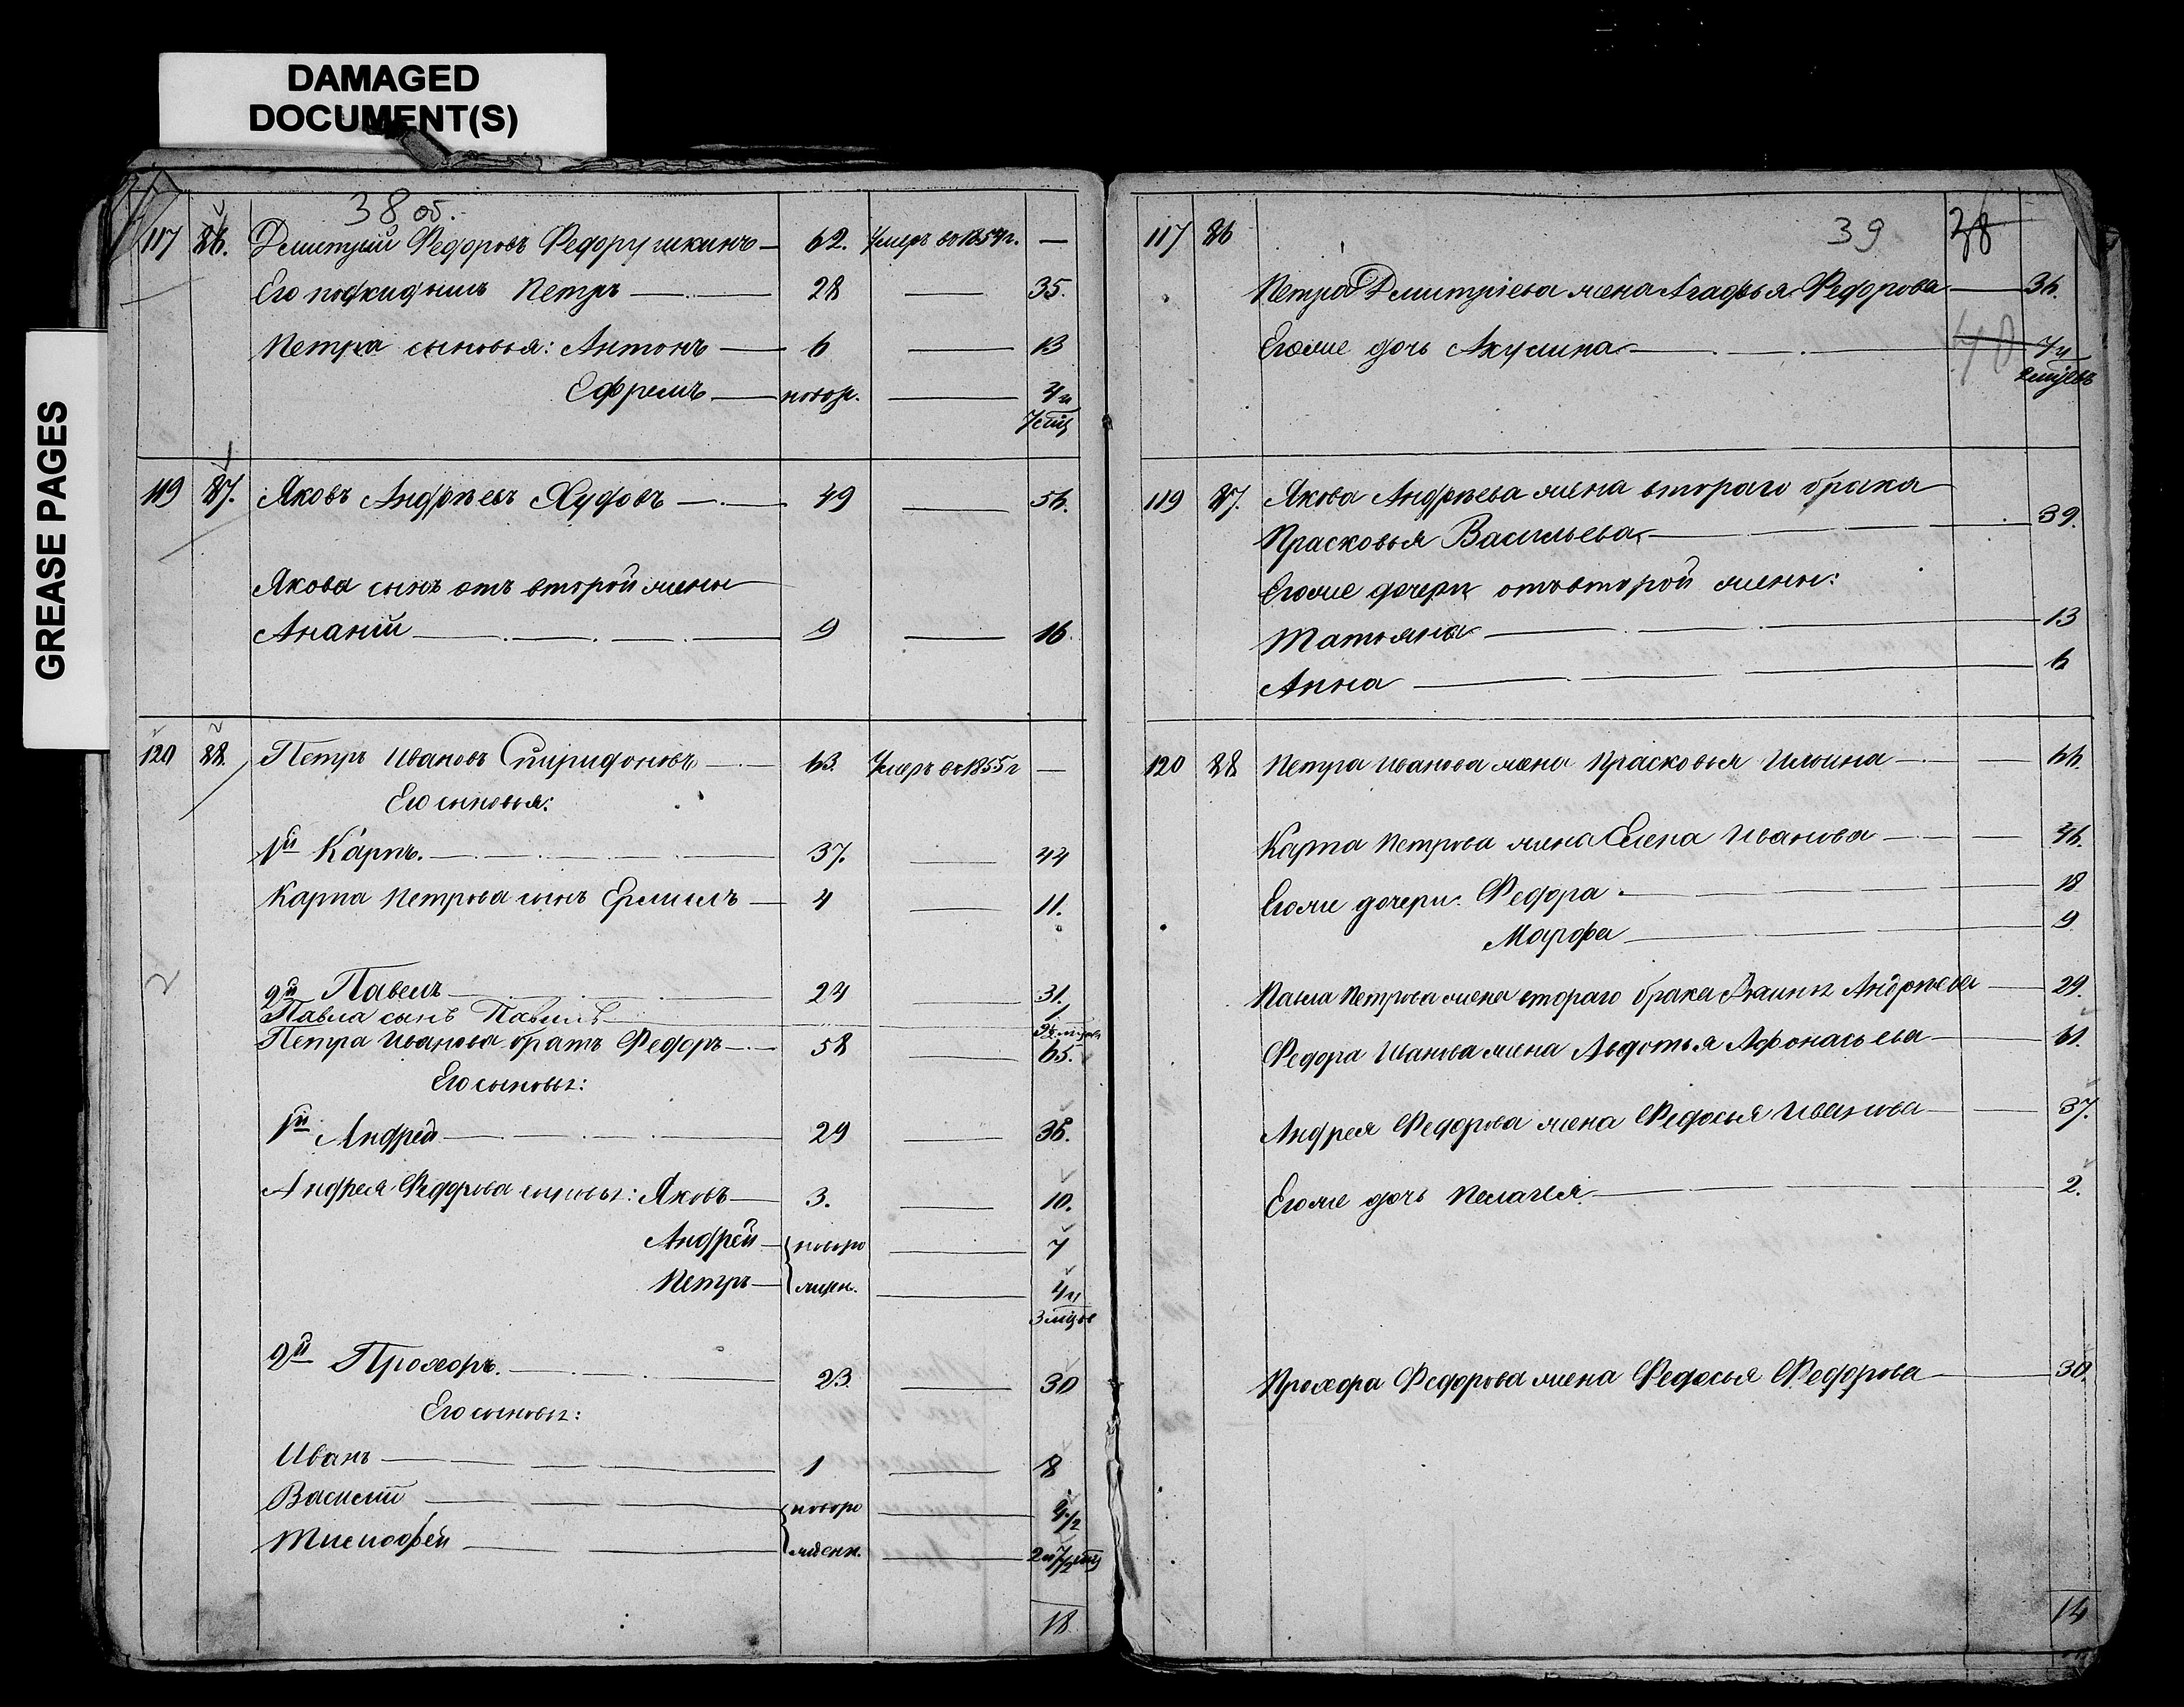 DAMAGED
DOCUMENT(S)
GREASE PAGES
38 об.
117 86. Дмитрий Федоровъ Федорушкинъ 62. Умеръ въ 1854 г. —
Его подкидышъ Петръ 28 — 35.
Петра сыновья: Антонъ 6 — 13
Ефремъ новор. —
119 87. Яковъ Андреевъ Худовъ 49 — 56.
Якова сынъ отъ второй жены
Ананiй 9 — 16
120 88. Петръ Ивановъ Спиридоновъ 63. Умеръ въ 1855 г —
Его сыновья:
1й Карпъ. 37. — 44
Карпа Петрова сынъ Ермилъ 4 — 11.
2й Павелъ 24 — 31.
Павла сынъ
Петра Иванова братъ Федоръ 58 65.
Его сыновья:
1й Андрей 29 — 36.
Андрея Федорова сыновья: Яковъ 3. — 10.
Андрей новоро — 7
Петръ жден. — 4
3 мцов
2й Прохоръ. 23. — 30
Его сыновья:
Иванъ 1 — 8
Василiй новоро — 4 1/2
Тимофей жденн. —
18
39 38
117 86
Петра Дмитрiева жена Агафья Федорова 36.
Его же дочь Акулина
40
119 87. Якова Андреева жена втораго брака
Прасковья Васильева 39.
Его же дочери отъ второй жены:
Татьяна 13
Анна 6
120 88 Петра Иванова жена Прасковья Ильина 66.
Карпа Петрова жена Елена Иванова 46.
Его же дочери: Федора 18
Марфа 9
Павла Петрова жена втораго брака Андреева 29.
Федора Иванова жена Авдотья Афонасьева 61.
Андрея Федорова жена Федосья Иванова 37.
Его же дочь Пелагея 2.
Прохора Федорова жена Федосья Федорова 30.
14